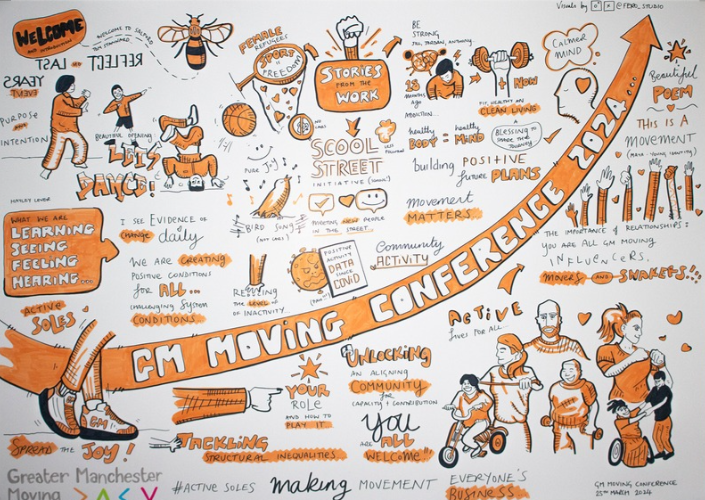 WELCOME
AND INTRODUCTIONS
WELCOME TO SALFORD
TOM STANNARD
REFLECT
LAST
YEARS
EVENT
PURPOSE
AND
INTENTION
BEAUTIFUL OPENING
LET'S
DANCE!
FEMALE
REFUGEES
SPORT
IS
FREEDOM
PURE JOY
BIRD SONG
(NOT CARS)
STORIES
FROM THE
WORK
SCOOL
STREET
INITIATIVE
MEETING NEW PEOPLE
IN THE STREET
BE
STRONG
18
MONTHS
AGO
ADDICTION
NOW
FIT, HEALTHY AND
CLEAN LIVING
healthy = healthy
BODY! = MIND
BLESSING to
SHARE THEIR
JOURNEY
building POSITIVE
future PLANS
Movement
MATTERS
CALMER
MIND
Visuals by @FEKI_STUDIO
Beautiful
POEM
THIS IS A
MOVEMENT
THE IMPORTANCE of RELATIONSHIPS:
YOU ARE ALL GM MOVING
INFLUENCERS.
MOVERS AND SHAKERS!!
WHAT WE ARE
LEARNING
SEEING
FEELING
HEARING...
I SEE EVIDENCE of
CHANGE daily
WE ARE CREATING
POSITIVE CONDITIONS
for ALL...
CHALLENGING SYSTEM
CONDITIONS.
REDUCING
the LEVEL of
OF INACTIVITY...
POSITIVE
ACTIVITY
DATA
SINCE
COVID
Community
ACTIVITY
GM MOVING CONFERENCE 2024...
ACTIVE
SOLES
GM
SPREAD THE JOY!
YOUR
ROLE
AND HOW TO
PLAY IT
TACKLING
STRUCTURAL INEQUALITIES
UNLOCKING
AN ALIGNING
COMMUNITY
FOR
CAPACITY + CONTRIBUTION
YOU
ARE ALL
WELCOME"
ACTIVE
lives FOR ALL
Greater Manchester
Moving
#ACTIVE SOLES
making MOVEMENT
EVERYONE'S
BUSINESS
GM MOVING CONFERENCE
25TH MARCH 2024